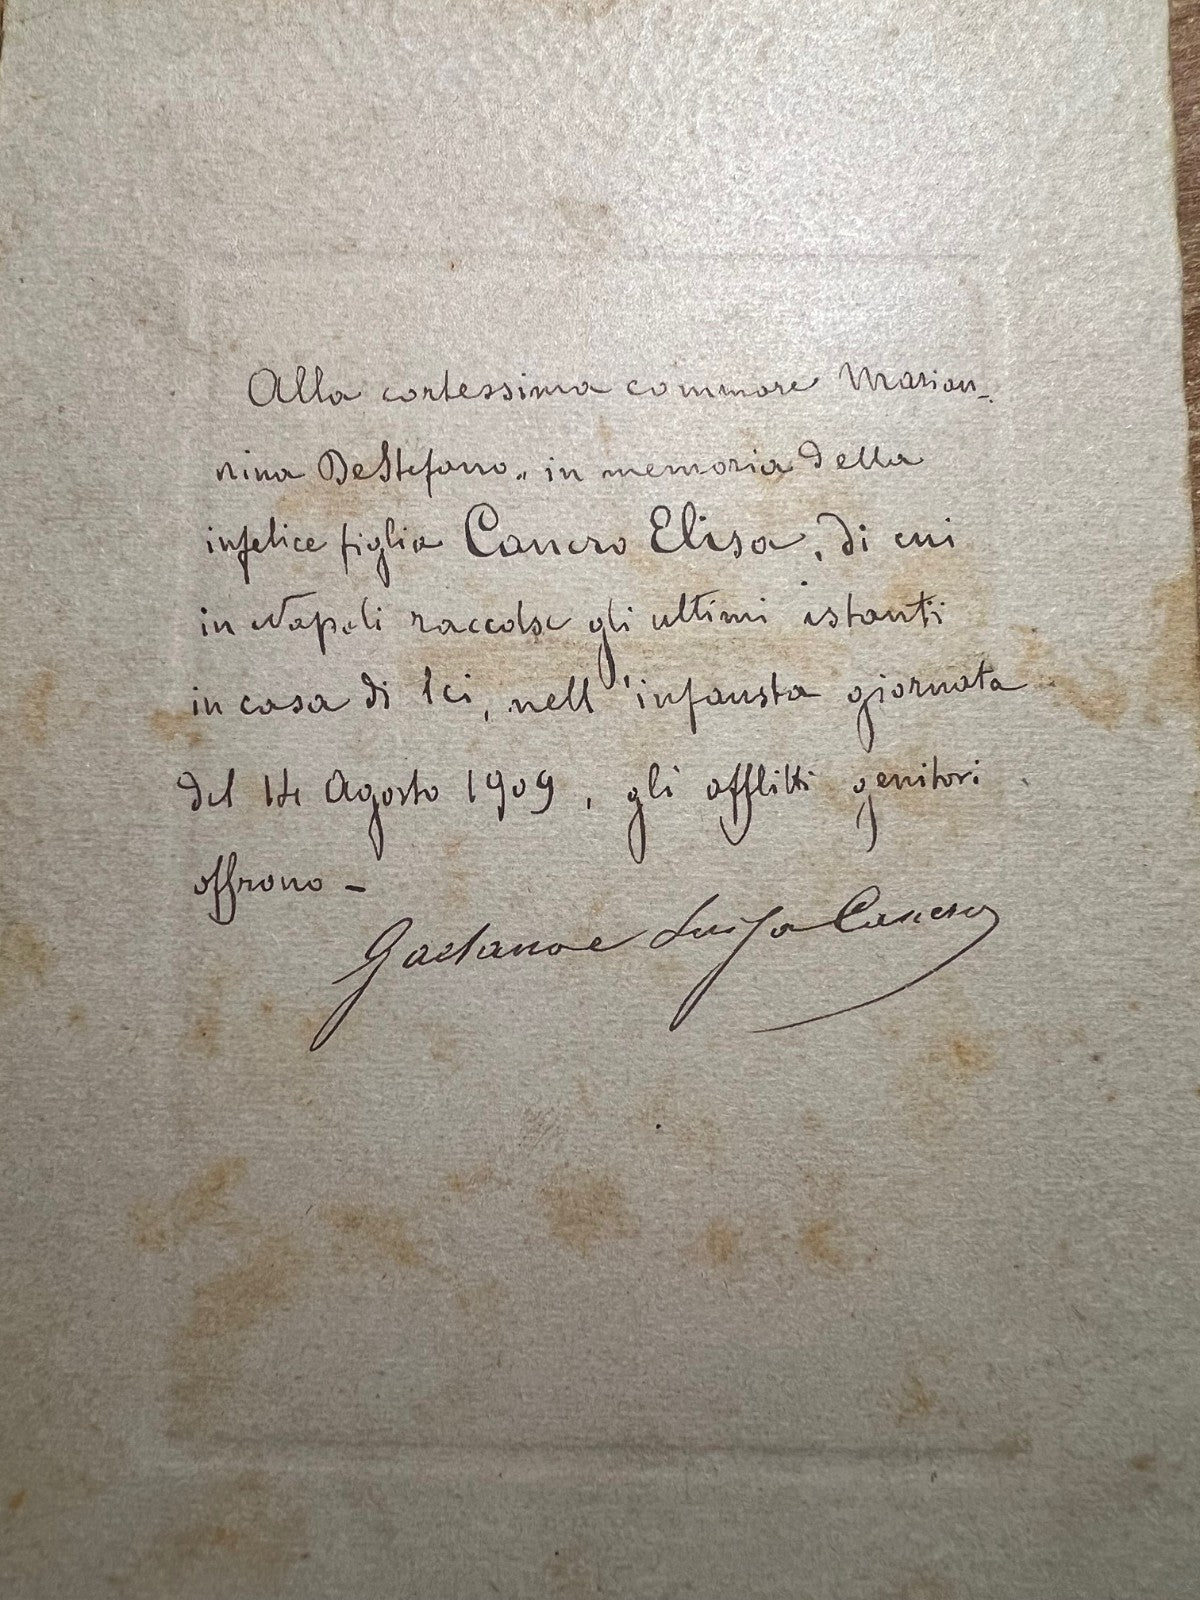 Alla cortessima commare Marian-
nina DeStefano, in memoria della
infelice figlia Cancro Elisa, di cui
in Napoli raccolse gli ultimi istanti
in casa di lei, nell'infausta giornata
del 14 Agosto 1909, gli afflitti genitori
offrono -
Gaetano e Luisa Cancro